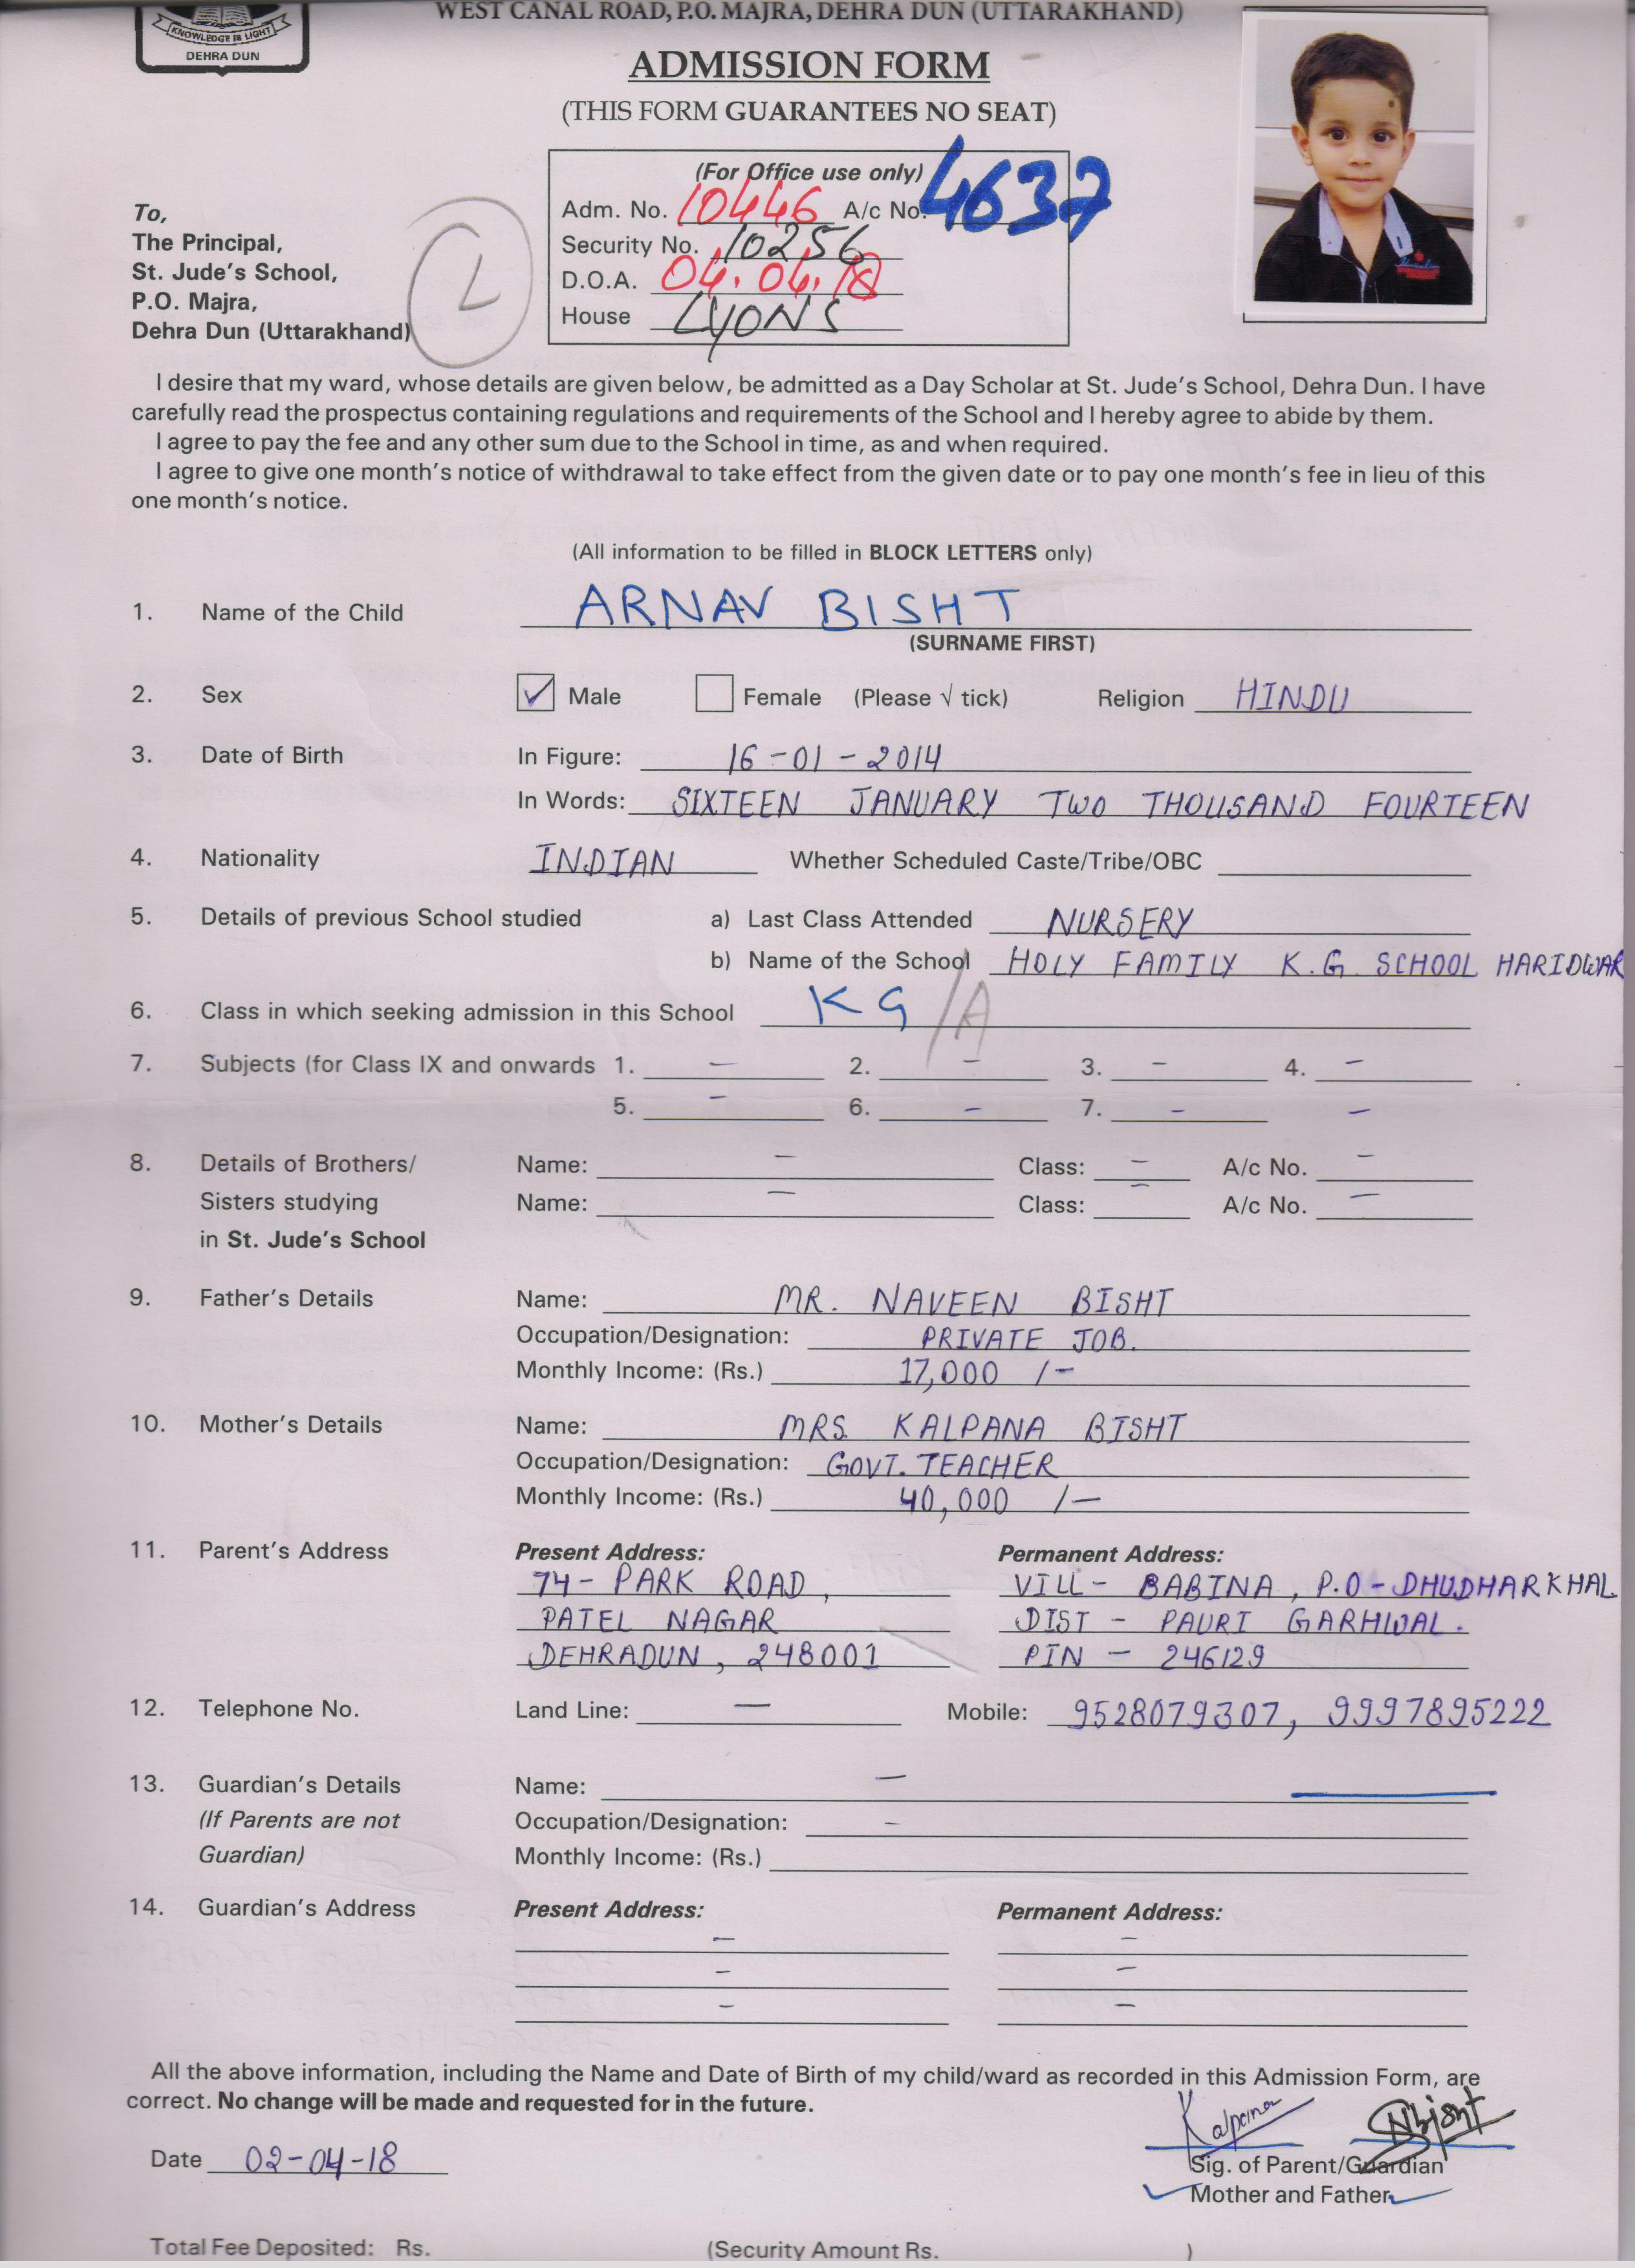 WEST CANAL ROAD, P.O. MAJRA, DEHRA DUN (UTTARAKHAND)
KNOWLEDGE IS LIGHT
DEHRA DUN
ADMISSION FORM
(THIS FORM GUARANTEES NO SEAT)
(For Office use only)
Adm. No. 10446 A/c No. 4637
Security No. 10256
D.O.A. 04.04.18
House LYONS
To,
The Principal,
St. Jude's School,
P.O. Majra,
Dehra Dun (Uttarakhand)
I desire that my ward, whose details are given below, be admitted as a Day Scholar at St. Jude's School, Dehra Dun. I have
carefully read the prospectus containing regulations and requirements of the School and I hereby agree to abide by them.
I agree to pay the fee and any other sum due to the School in time, as and when required.
I agree to give one month's notice of withdrawal to take effect from the given date or to pay one month's fee in lieu of this
one month's notice.
(All information to be filled in BLOCK LETTERS only)
1. Name of the Child ARNAV BISHT
(SURNAME FIRST)
2. Sex ✓ Male Female (Please √ tick) Religion HINDU
3. Date of Birth In Figure: 16-01-2014
In Words: SIXTEEN JANUARY TWO THOUSAND FOURTEEN
4. Nationality INDIAN Whether Scheduled Caste/Tribe/OBC
5. Details of previous School studied a) Last Class Attended NURSERY
b) Name of the School HOLY FAMILY K.G. SCHOOL HARIDWAR
6. Class in which seeking admission in this School KG/A
7. Subjects (for Class IX and onwards 1. - 2. - 3. - 4. -
5. - 6. - 7. - -
8. Details of Brothers/ Name: - Class: - A/c No. -
Sisters studying Name: - Class: - A/c No. -
in St. Jude's School
9. Father's Details Name: MR. NAVEEN BISHT
Occupation/Designation: PRIVATE JOB.
Monthly Income: (Rs.) 17,000 /-
10. Mother's Details Name: MRS. KALPANA BISHT
Occupation/Designation: GOVT. TEACHER
Monthly Income: (Rs.) 40,000 /-
11. Parent's Address Present Address: Permanent Address:
74- PARK ROAD, VILL- BABINA, P.O-DHUDHARKHAL
PATEL NAGAR DIST - PAURI GARHWAL.
DEHRADUN, 248001 PIN - 246129
12. Telephone No. Land Line: - Mobile: 9528079307, 9997895222
13. Guardian's Details Name: -
(If Parents are not Occupation/Designation: -
Guardian) Monthly Income: (Rs.)
14. Guardian's Address Present Address: Permanent Address:
- -
- -
- -
All the above information, including the Name and Date of Birth of my child/ward as recorded in this Admission Form, are
correct. No change will be made and requested for in the future.
Kalpana NBisht
Date 02-04-18 Sig. of Parent/Guardian
Mother and Father
Total Fee Deposited: Rs. (Security Amount Rs. )